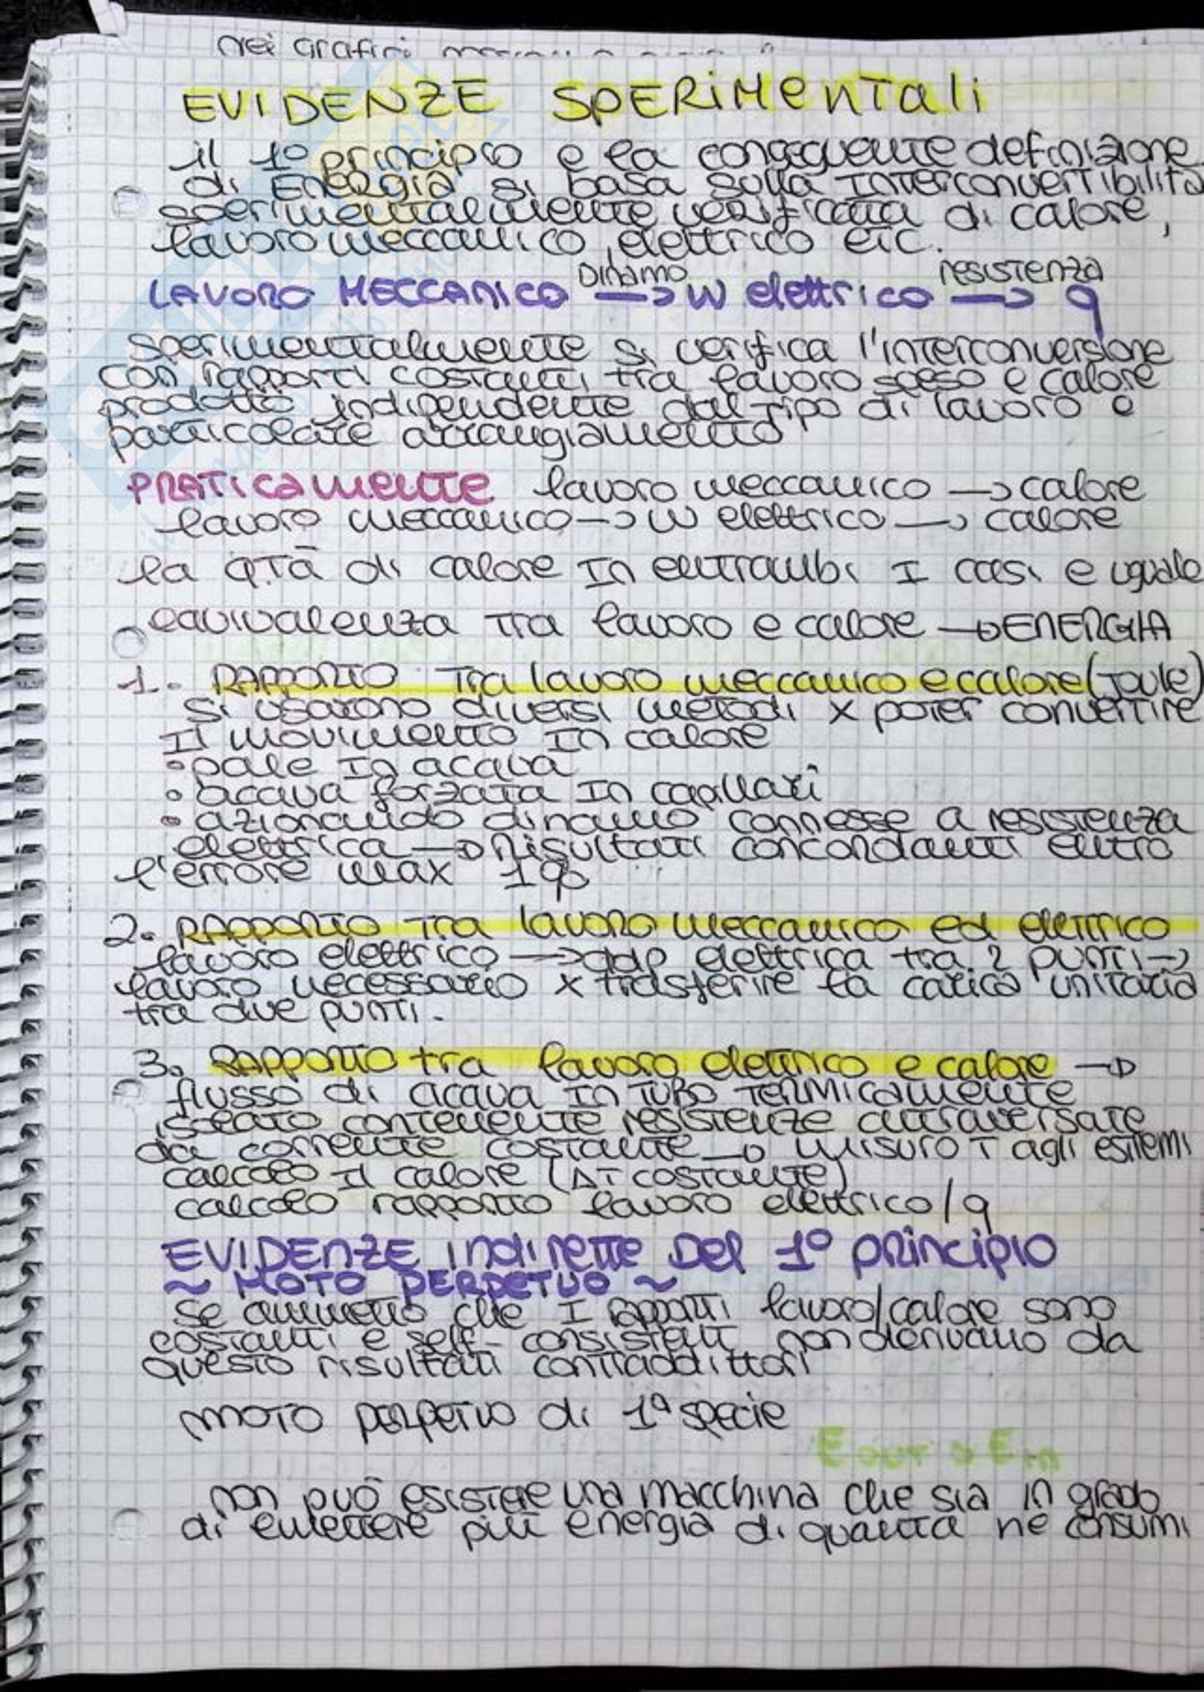 nei grafici
EVIDENZE SPERIMENTALI
il 1° principio e la conseguente definizione
di Energia si basa sulla interconvertibilità
sperimentalmente verificata di calore,
lavoro meccanico, elettrico etc.
LAVORO MECCANICO —Dinamo→ W elettrico —resistenza→ q
sperimentalmente si verifica l'interconversione
con rapporti costanti tra lavoro speso e calore
prodotto indipendente dal tipo di lavoro e
particolare arrangiamento
PRATICAMENTE lavoro meccanico → calore
lavoro meccanico → W elettrico → calore
la q.tà di calore in entrambi i casi e uguale
equivalenza tra lavoro e calore → ENERGIA
1. RAPPORTO tra lavoro meccanico e calore (Joule)
si usarono diversi metodi x poter convertire
il movimento in calore
• pale in acqua
• acqua forzata in capillari
• azionando dinamo connesse a resistenza
elettrica → risultati concordanti entro
l'errore max 1%
2. RAPPORTO tra lavoro meccanico ed elettrico
lavoro elettrico → ddp elettrica tra 2 punti →
lavoro necessario x trasferire la carica unitaria
tra due punti.
3. RAPPORTO tra lavoro elettrico e calore →
flusso di acqua in tubo termicamente
isolato contenente resistenze attraversate
da corrente costante → misuro T agli estremi
calcolo il calore (ΔT costante)
calcolo rapporto lavoro elettrico/q
EVIDENZE indirette del 1° principio
~ MOTO PERPETUO ~
se ammetto che i rapporti lavoro/calore sono
costanti e self-consistent, non derivano da
questo risultati contraddittori
moto perpetuo di 1ª specie
E out > E in
non può esistere una macchina che sia in grado
di emettere più energia di quanta ne consumi